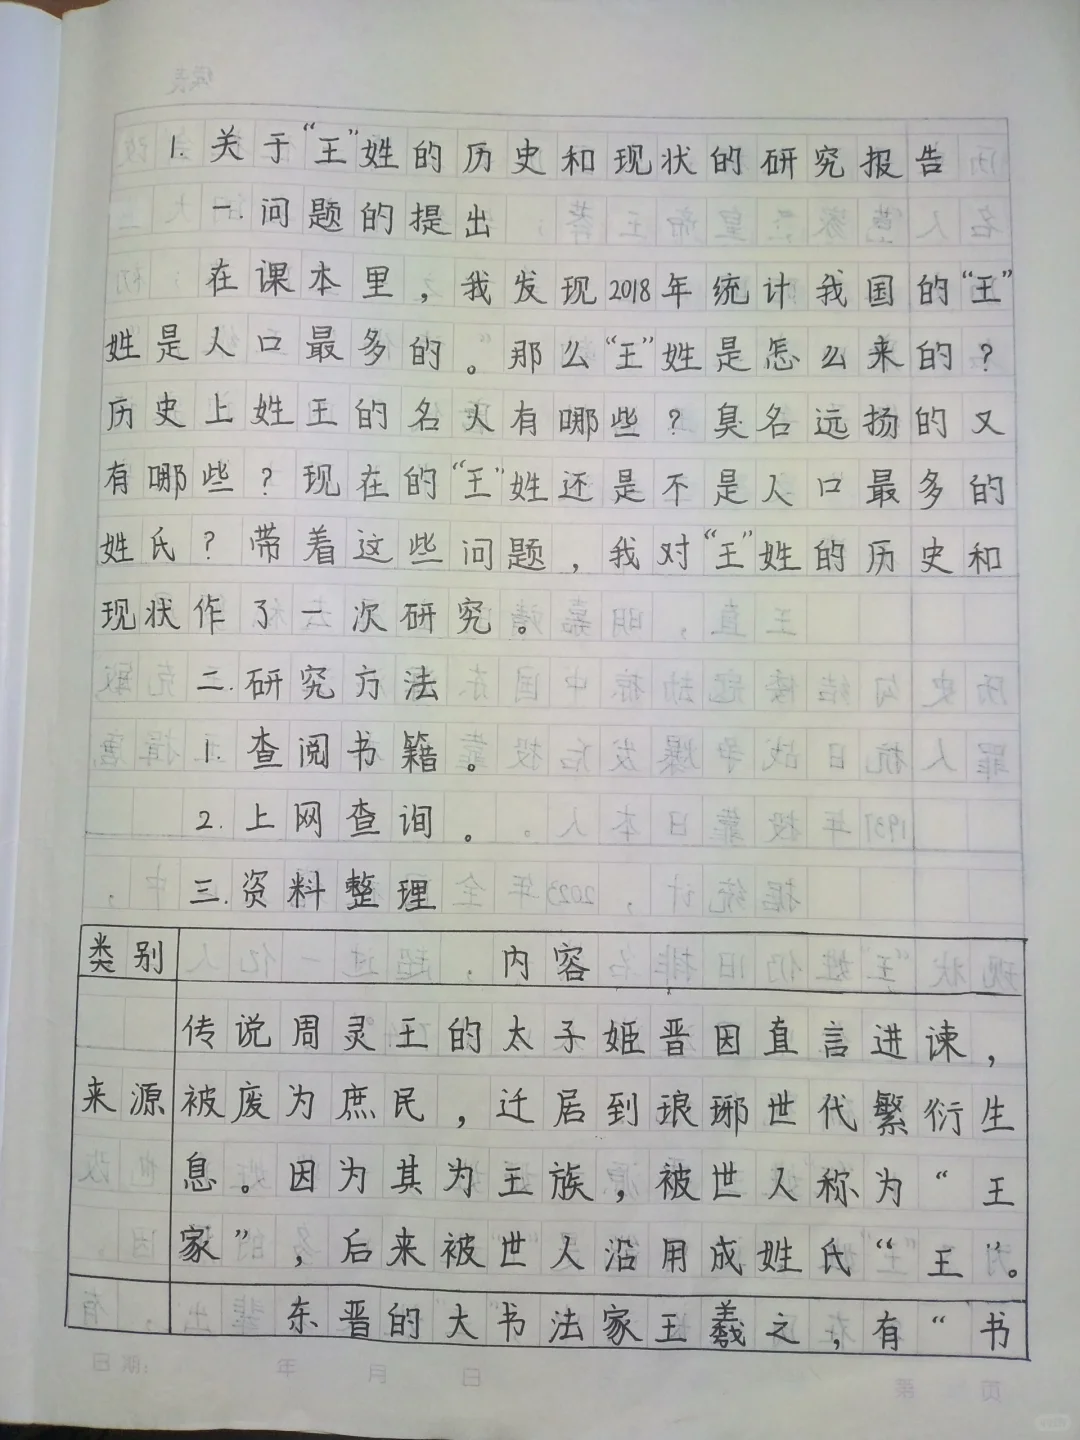 1.关于“王”姓的历史和现状的研究报告
一.问题的提出
在课本里，我发现2018年统计我国的“王”
姓是人口最多的。那么“王”姓是怎么来的？
历史上姓王的名人有哪些？臭名远扬的又
有哪些？现在的“王”姓还是不是人口最多的
姓氏？带着这些问题，我对“王”姓的历史和
现状作了一次研究。
二.研究方法
1.查阅书籍。
2.上网查询。
三.资料整理
类别 内容
传说周灵王的太子姬晋因直言进谏，
来源 被废为庶民，迁居到琅琊世代繁衍生
息。因为其为王族，被世人称为“王
家”，后来被世人沿用成姓氏“王”。
东晋的大书法家王羲之，有“书
日期： 年 月 日 第 页